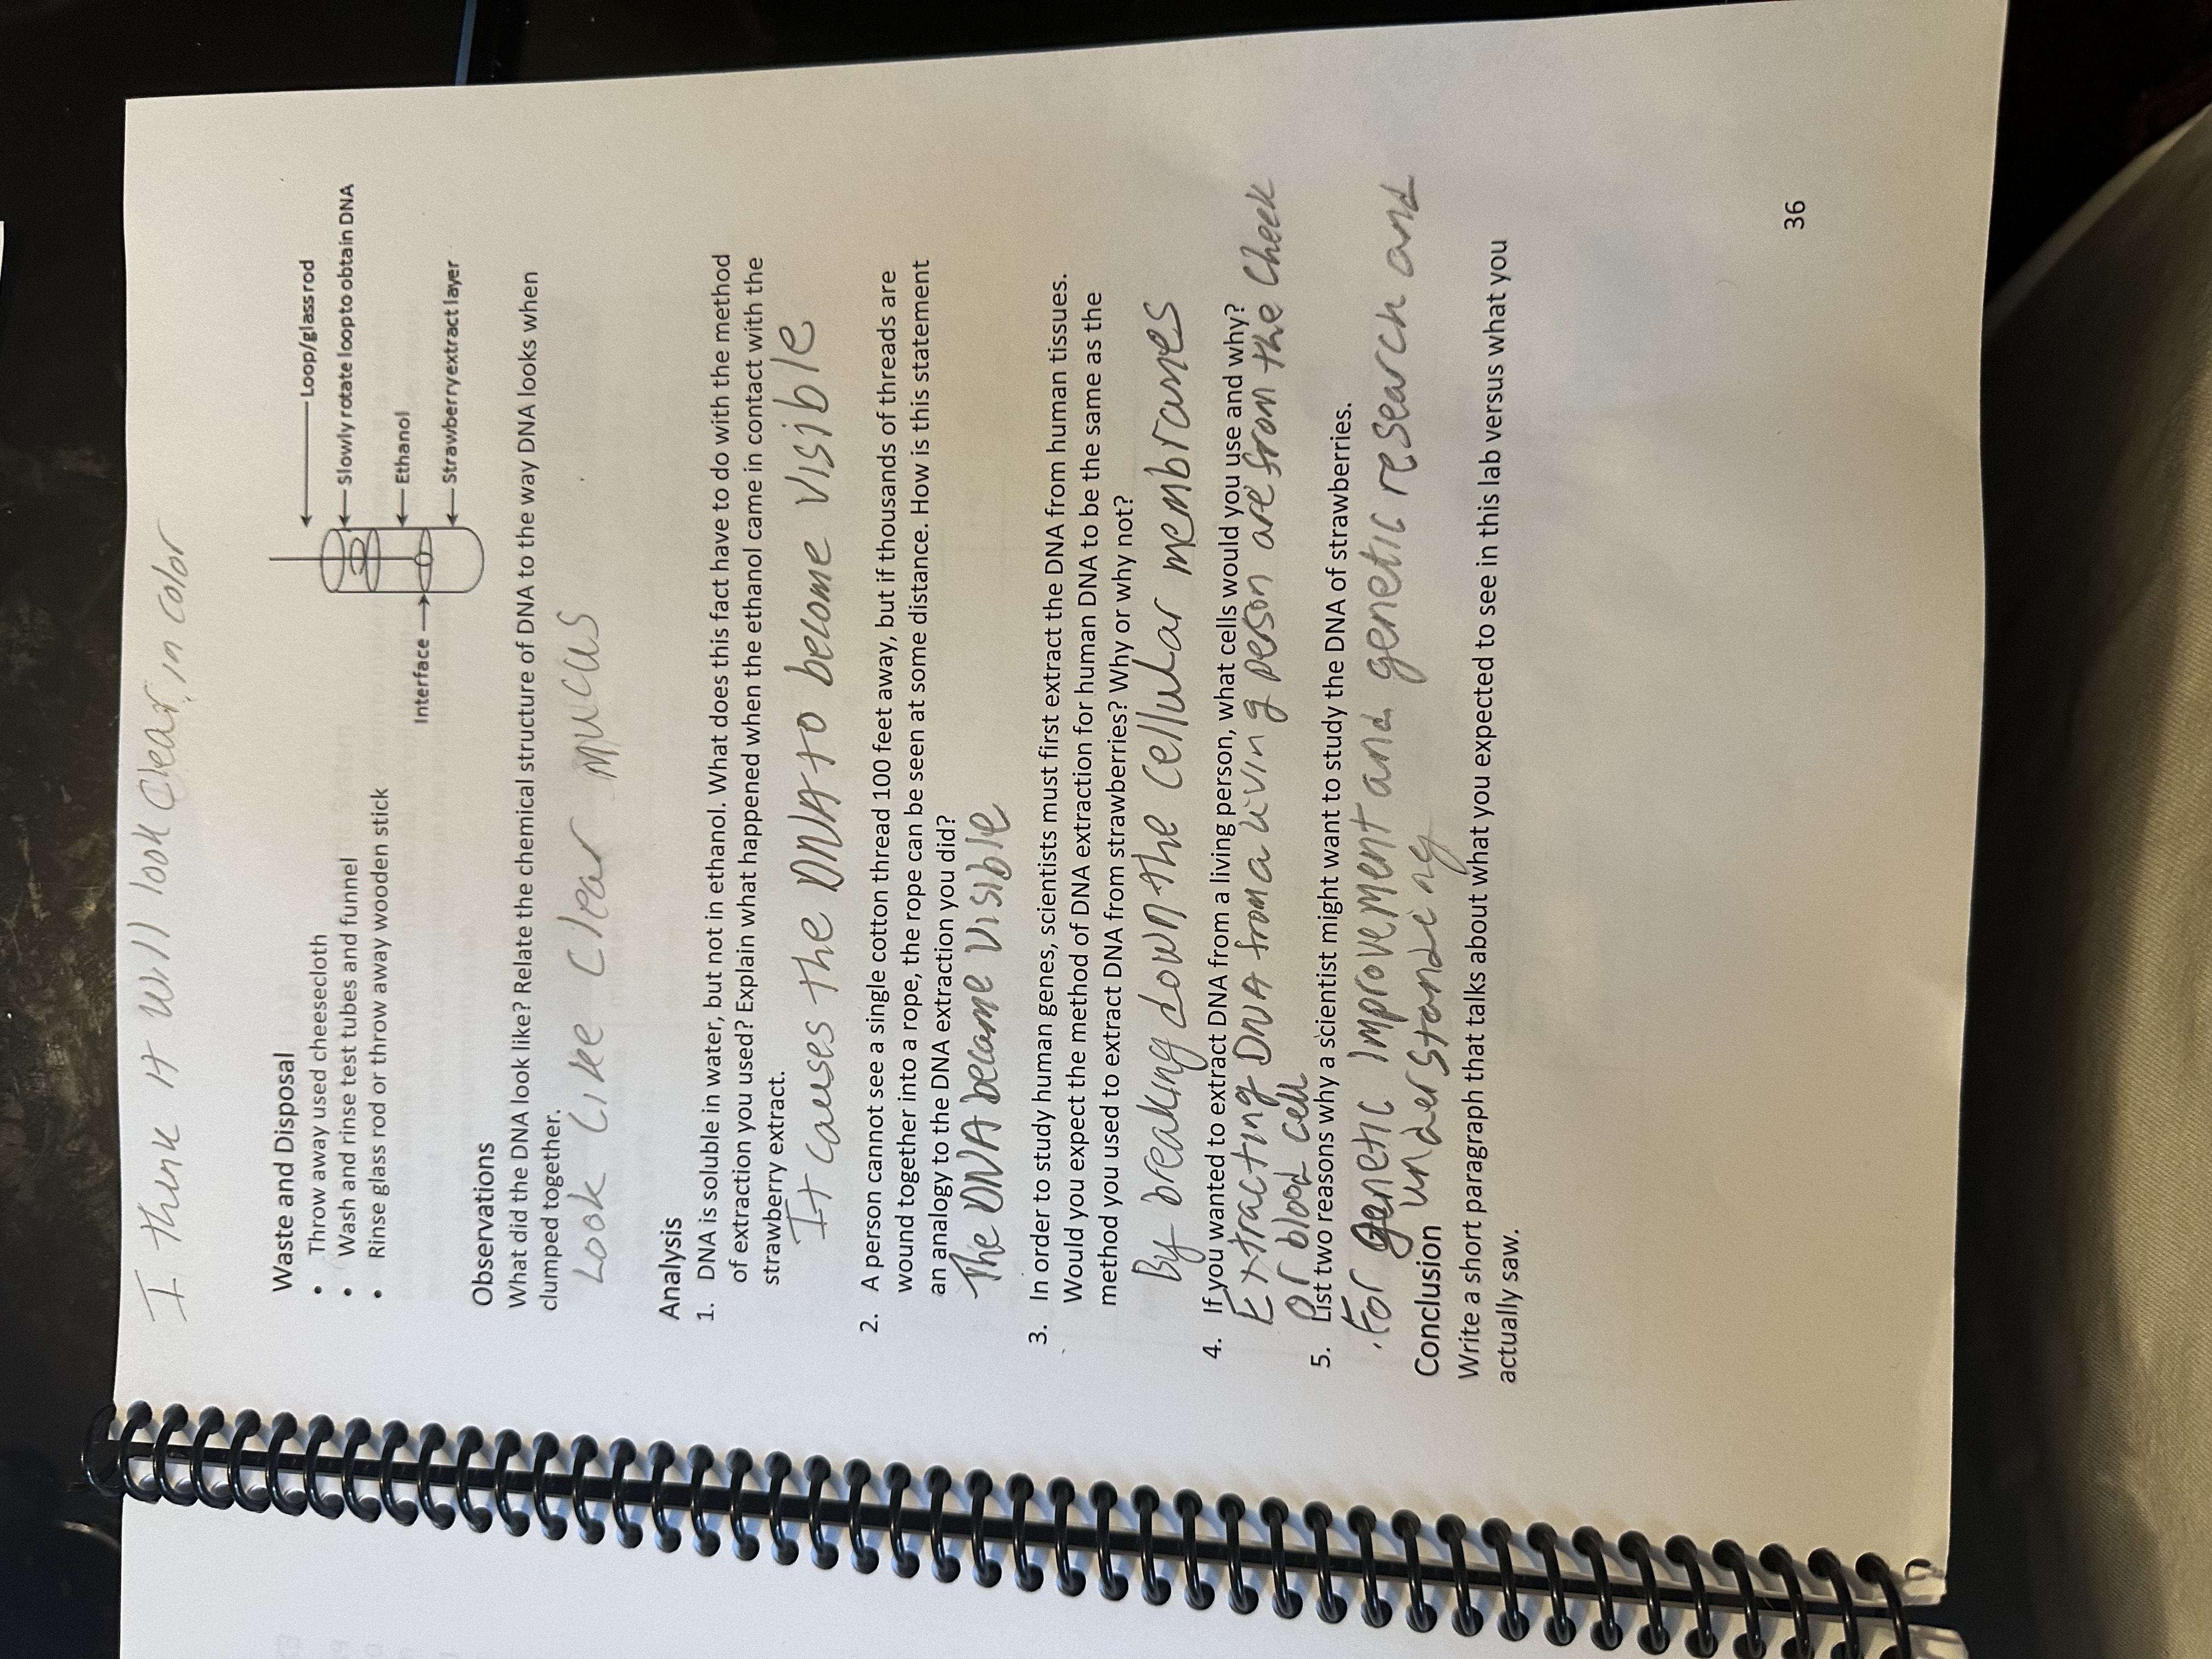 I think it will look clear, in color
Waste and Disposal
• Throw away used cheesecloth
• Wash and rinse test tubes and funnel
• Rinse glass rod or throw away wooden stick
Loop/glass rod
Slowly rotate loop to obtain DNA
Ethanol
Interface
Strawberry extract layer
Observations
What did the DNA look like? Relate the chemical structure of DNA to the way DNA looks when
clumped together.
Look like clear mucus
Analysis
1. DNA is soluble in water, but not in ethanol. What does this fact have to do with the method
of extraction you used? Explain what happened when the ethanol came in contact with the
strawberry extract.
It causes the DNA to become visible
2. A person cannot see a single cotton thread 100 feet away, but if thousands of threads are
wound together into a rope, the rope can be seen at some distance. How is this statement
an analogy to the DNA extraction you did?
The DNA became visible
3. In order to study human genes, scientists must first extract the DNA from human tissues.
Would you expect the method of DNA extraction for human DNA to be the same as the
method you used to extract DNA from strawberries? Why or why not?
By breaking down the cellular membranes
4. If you wanted to extract DNA from a living person, what cells would you use and why?
Extracting DNA from a living person are from the cheek
or blood cell
5. List two reasons why a scientist might want to study the DNA of strawberries.
. For genetic improvement and genetic research and
understanding
Conclusion
Write a short paragraph that talks about what you expected to see in this lab versus what you
actually saw.
36